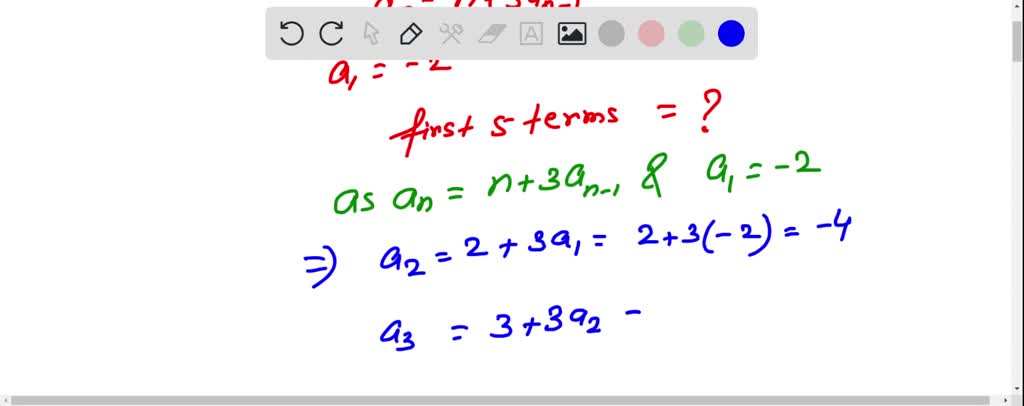 a₁ = -2
first 5 terms = ?
as aₙ = n+3aₙ₋₁ & a₁ = -2
⇒) a₂ = 2 + 3a₁ = 2+3(-2) = -4
a₃ = 3+3a₂ -